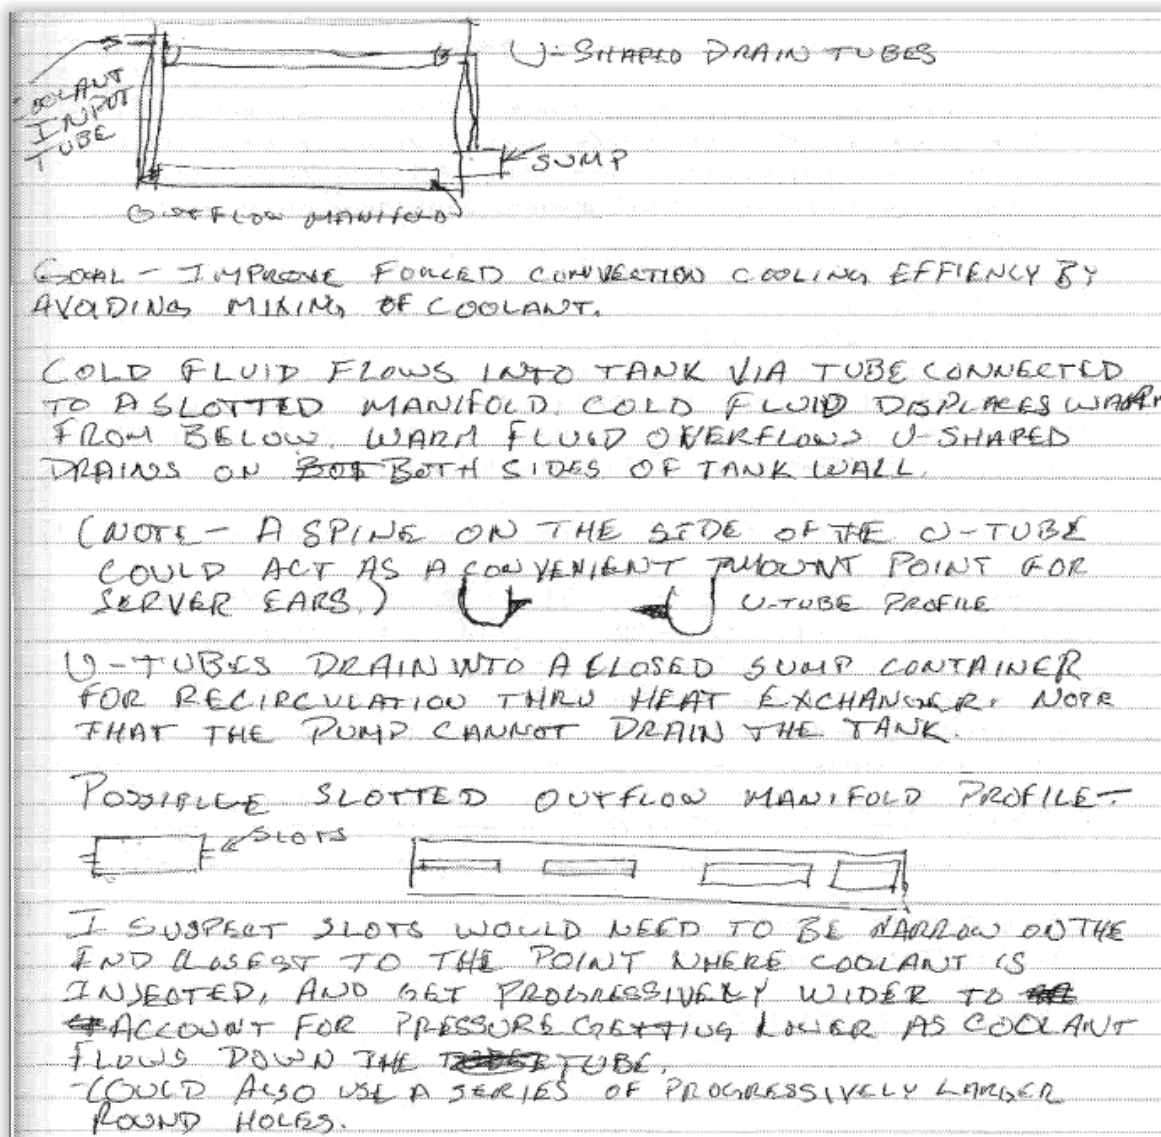 U-SHAPED DRAIN TUBES
COOLANT
INPUT
TUBE
SUMP
OUTFLOW MANIFOLD
GOAL - IMPROVE FORCED CONVECTION COOLING EFFIENCY BY
AVOIDING MIXING OF COOLANT.
COLD FLUID FLOWS INTO TANK VIA TUBE CONNECTED
TO A SLOTTED MANIFOLD. COLD FLUID DISPLACES WARM
FROM BELOW. WARM FLUID OVERFLOWS U-SHAPED
DRAINS ON BOTH SIDES OF TANK WALL.
(NOTE - A SPINE ON THE SIDE OF THE U-TUBE
COULD ACT AS A CONVENIENT MOUNT POINT FOR
SERVER EARS.)
U-TUBE PROFILE
U-TUBES DRAIN INTO A CLOSED SUMP CONTAINER
FOR RECIRCULATION THRU HEAT EXCHANGER. NOTE
THAT THE PUMP CANNOT DRAIN THE TANK.
POSSIBLE SLOTTED OUTFLOW MANIFOLD PROFILE-
SLOTS
I SUSPECT SLOTS WOULD NEED TO BE NARROW ON THE
END CLOSEST TO THE POINT WHERE COOLANT IS
INJECTED, AND GET PROGRESSIVELY WIDER TO
ACCOUNT FOR PRESSURE GETTING LOWER AS COOLANT
FLOWS DOWN THE TUBE.
-COULD ALSO USE A SERIES OF PROGRESSIVELY LARGER
ROUND HOLES.